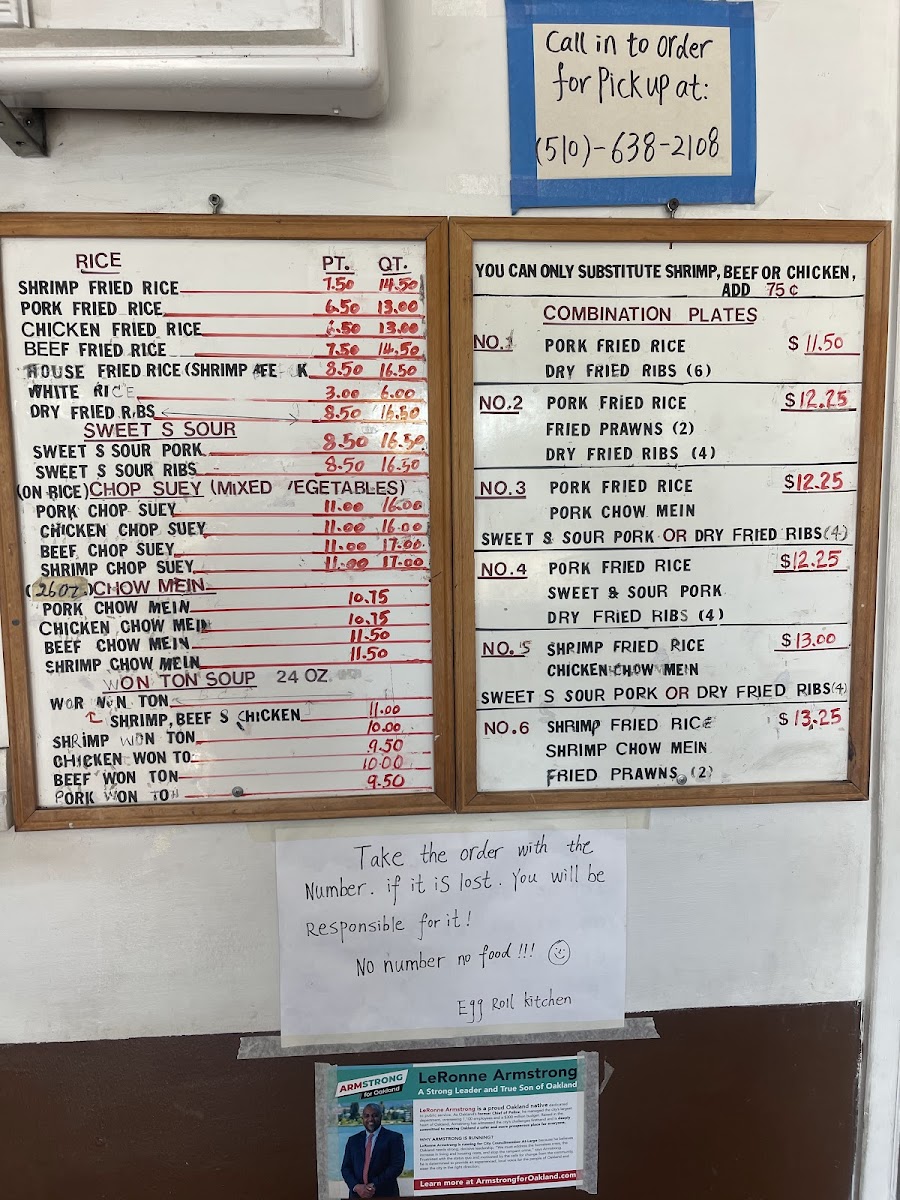 Call in to order
for Pick up at:
(510)-638-2108
RICE PT. QT.
SHRIMP FRIED RICE 7.50 14.50
PORK FRIED RICE 6.50 13.00
CHICKEN FRIED RICE 6.50 13.00
BEEF FRIED RICE 7.50 14.50
HOUSE FRIED RICE (SHRIMP EE K 8.50 16.50
WHITE RICE 3.00 6.00
DRY FRIED RIBS 8.50 16.50
SWEET S SOUR
SWEET S SOUR PORK 8.50 16.50
SWEET S SOUR RIBS 8.50 16.50
(ON RICE) CHOP SUEY (MIXED VEGETABLES)
PORK CHOP SUEY 11.00 16.00
CHICKEN CHOP SUEY 11.00 16.00
BEEF CHOP SUEY 11.00 17.00
SHRIMP CHOP SUEY 11.00 17.00
(26oz) CHOW MEIN
PORK CHOW MEIN 10.75
CHICKEN CHOW MEIN 10.75
BEEF CHOW MEIN 11.50
SHRIMP CHOW MEIN 11.50
WON TON SOUP 24 OZ
WOR WON TON
SHRIMP, BEEF S CHICKEN 11.00
SHRIMP WON TON 10.00
CHICKEN WON TO 9.50
BEEF WON TON 10.00
PORK WON TON 9.50
YOU CAN ONLY SUBSTITUTE SHRIMP, BEEF OR CHICKEN,
ADD 75¢
COMBINATION PLATES
NO.1 PORK FRIED RICE $11.50
DRY FRIED RIBS (6)
NO.2 PORK FRIED RICE $12.25
FRIED PRAWNS (2)
DRY FRIED RIBS (4)
NO.3 PORK FRIED RICE $12.25
PORK CHOW MEIN
SWEET & SOUR PORK OR DRY FRIED RIBS(4)
NO.4 PORK FRIED RICE $12.25
SWEET & SOUR PORK
DRY FRIED RIBS (4)
NO.5 SHRIMP FRIED RICE $13.00
CHICKEN CHOW MEIN
SWEET S SOUR PORK OR DRY FRIED RIBS(4)
NO.6 SHRIMP FRIED RICE $13.25
SHRIMP CHOW MEIN
FRIED PRAWNS (2)
Take the order with the
Number. if it is lost. You will be
Responsible for it!
No number no food!!!
Egg Roll kitchen
ARMSTRONG
for Oakland
LeRonne Armstrong
A Strong Leader and True Son of Oakland
LeRonne Armstrong is a proud Oakland native
WHY ARMSTRONG IS RUNNING?
Learn more at ArmstrongforOakland.com